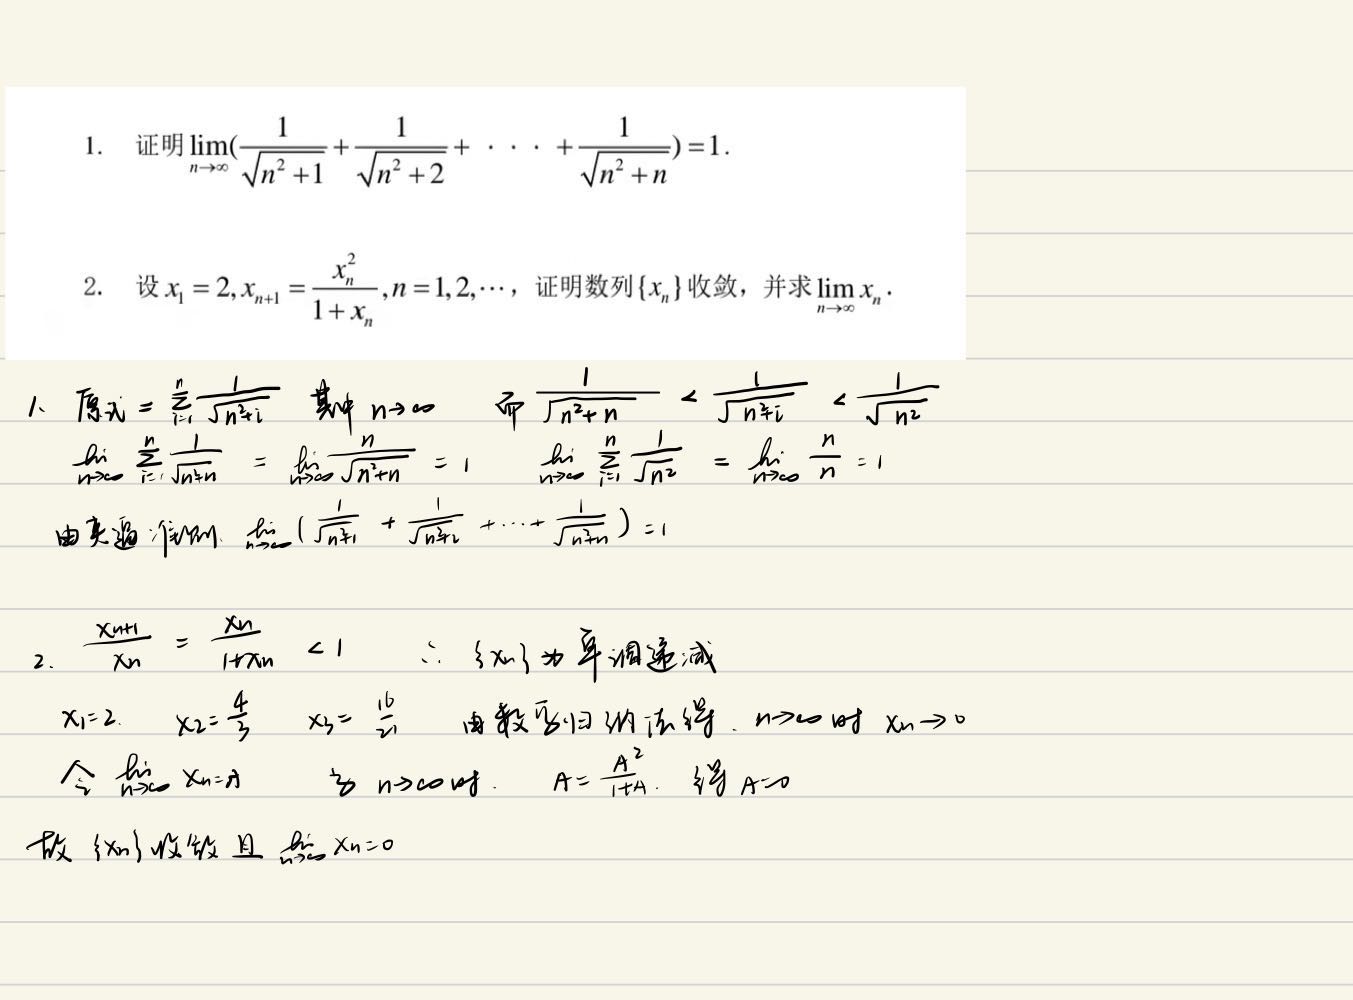 1. 证明 lim_{n→∞}(1/√(n²+1) + 1/√(n²+2) + · · · + 1/√(n²+n)) = 1.
2. 设 x₁ = 2, x_{n+1} = x_n²/(1+x_n), n = 1, 2, ⋯, 证明数列{x_n}收敛, 并求 lim_{n→∞} x_n.
1、原式 = ∑_{i=1}^{n} 1/√(n²+i) 其中 n→∞ 而 1/√(n²+n) < 1/√(n²+i) < 1/√(n²)
lim_{n→∞} ∑_{i=1}^{n} 1/√(n²+n) = lim_{n→∞} n/√(n²+n) = 1 lim_{n→∞} ∑_{i=1}^{n} 1/√(n²) = lim_{n→∞} n/n = 1
由夹逼准则 lim_{n→∞}(1/√(n²+1) + 1/√(n²+2) + ⋯ + 1/√(n²+n)) = 1
2. x_{n+1}/x_n = x_n/(1+x_n) < 1 ∴ {x_n}为单调递减
x₁=2. x₂=4/3 x₃=16/21 由数学归纳法得. n→∞时 x_n→0
令 lim_{n→∞} x_n=A 当 n→∞时. A=A²/(1+A). 得 A=0
故 {x_n}收敛且 lim_{n→∞} x_n=0